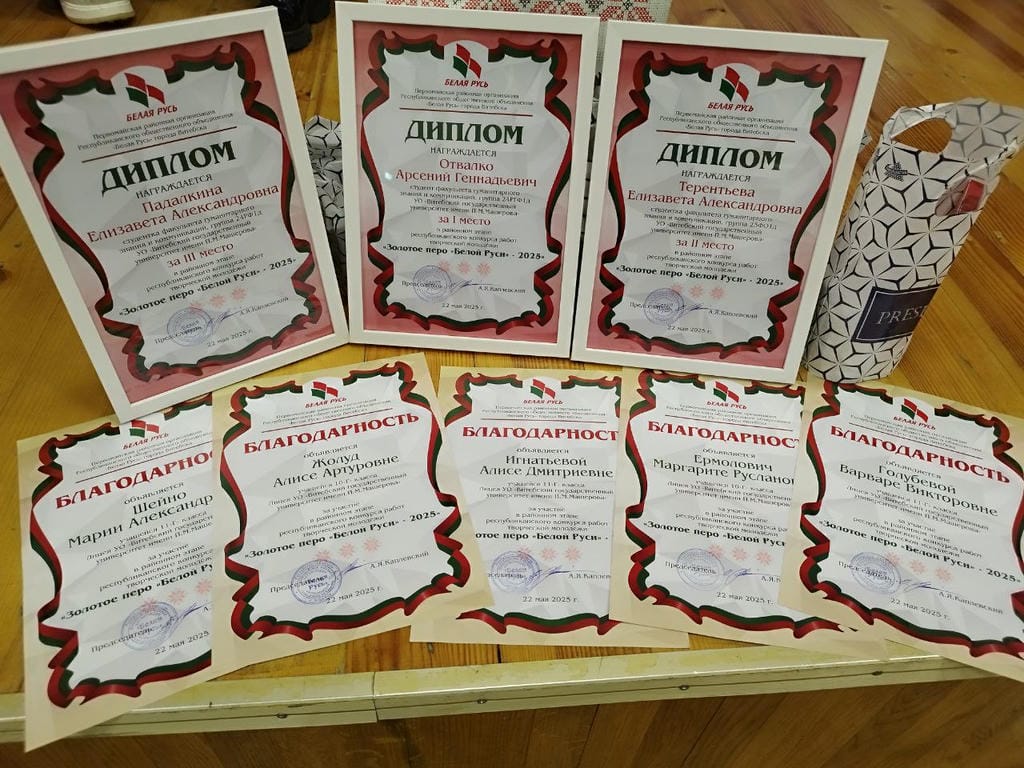 БЕЛАЯ РУСЬ
Первомайская районная организация
Республиканского общественного объединения
«Белая Русь» города Витебска
ДИПЛОМ
НАГРАЖДАЕТСЯ
Падалкина
Елизавета Александровна
студентка факультета гуманитарного
знания и коммуникаций, группа 24РГФ1Д
УО «Витебский государственный
университет имени П.М.Машерова»
за III место
в районном этапе
республиканского конкурса работ
творческой молодежи
«Золотое перо «Белой Руси» - 2025»
Председатель
А.Я.Каплевский
22 мая 2025 г.
БЕЛАЯ РУСЬ
Первомайская районная организация
Республиканского общественного объединения
«Белая Русь» города Витебска
ДИПЛОМ
НАГРАЖДАЕТСЯ
Отвалко
Арсений Геннадьевич
студент факультета гуманитарного
знания и коммуникаций, группа 24РГФ1Д
УО «Витебский государственный
университет имени П.М.Машерова»
за I место
в районном этапе
республиканского конкурса работ
творческой молодежи
«Золотое перо «Белой Руси» - 2025»
Председатель
А.Я.Каплевский
22 мая 2025 г.
БЕЛАЯ РУСЬ
Первомайская районная организация
Республиканского общественного объединения
«Белая Русь» города Витебска
ДИПЛОМ
НАГРАЖДАЕТСЯ
Терентьева
Елизавета Александровна
студентка факультета гуманитарного
знания и коммуникаций, группа 23ФО1Д
УО «Витебский государственный
университет имени П.М.Машерова»
за II место
в районном этапе
республиканского конкурса работ
творческой молодежи
«Золотое перо «Белой Руси» - 2025»
Председатель
А.Я.Каплевский
22 мая 2025 г.
PRES
БЕЛАЯ РУСЬ
Первомайская районная организация
Республиканского общественного объединения
«Белая Русь» города Витебска
БЛАГОДАРНОС
объявляется
Шейно
Марии Александр
учащейся 11-Г класса
Лицея УО «Витебский государствен
университет имени П.М.Машерова
за участие
в районном этапе
республиканского конкурса
творческой молодежи
«Золотое перо «Белой Ру
Председатель
А.Я
22 мая 2025
БЕЛАЯ РУСЬ
Первомайская районная организация
Республиканского общественного объединения
«Белая Русь» города Витебска
БЛАГОДАРНОСТЬ
объявляется
Жолуд
Алисе Артуровне
учащейся 10-Г класса
Лицея УО «Витебский государственный
университет имени П.М.Машерова»
за участие
в районном этапе
республиканского конкурса работ
творческой молодежи
«Золотое перо «Белой Руси» - 2025»
Председатель
А.Я.Каплевский
22 мая 2025 г.
БЕЛАЯ РУСЬ
Первомайская районная организация
Республиканского общественного объединения
«Белая Русь» города Витебска
БЛАГОДАРНОСТ
объявляется
Игнатьевой
Алисе Дмитриевне
учащейся 11-Г класса
Лицея УО «Витебский государственный
университет имени П.М.Машерова»
за участие
в районном этапе
республиканского конкурса работ
творческой молодежи
«Золотое перо «Белой Руси» -
Председатель
А.Я.Каплев
22 мая 2025 г.
БЕЛАЯ РУСЬ
Первомайская районная организация
Республиканского общественного объединения
«Белая Русь» города Витебска
БЛАГОДАРНОСТ
объявляется
Ермолович
Маргарите Русланов
учащейся 10-Г класса
Лицея УО «Витебский государственный
университет имени П.М.Машерова»
за участие
в районном этапе
республиканского конкурса работ
творческой молодежи
«Золотое перо «Белой Руси» -
Председатель
А.Я.Кап
22 мая 2025 г.
БЕЛАЯ РУСЬ
Первомайская районная организация
Республиканского общественного объединения
«Белая Русь» города Витебска
БЛАГОДАРНОСТЬ
объявляется
Голубевой
Варваре Викторовне
учащейся 11-Г класса
Лицея УО «Витебский государственный
университет имени П.М.Машерова»
за участие
в районном этапе
республиканского конкурса работ
творческой молодежи
«Золотое перо «Белой Руси» - 2025»
Председатель
А.Я.Каплевский
22 мая 2025 г.